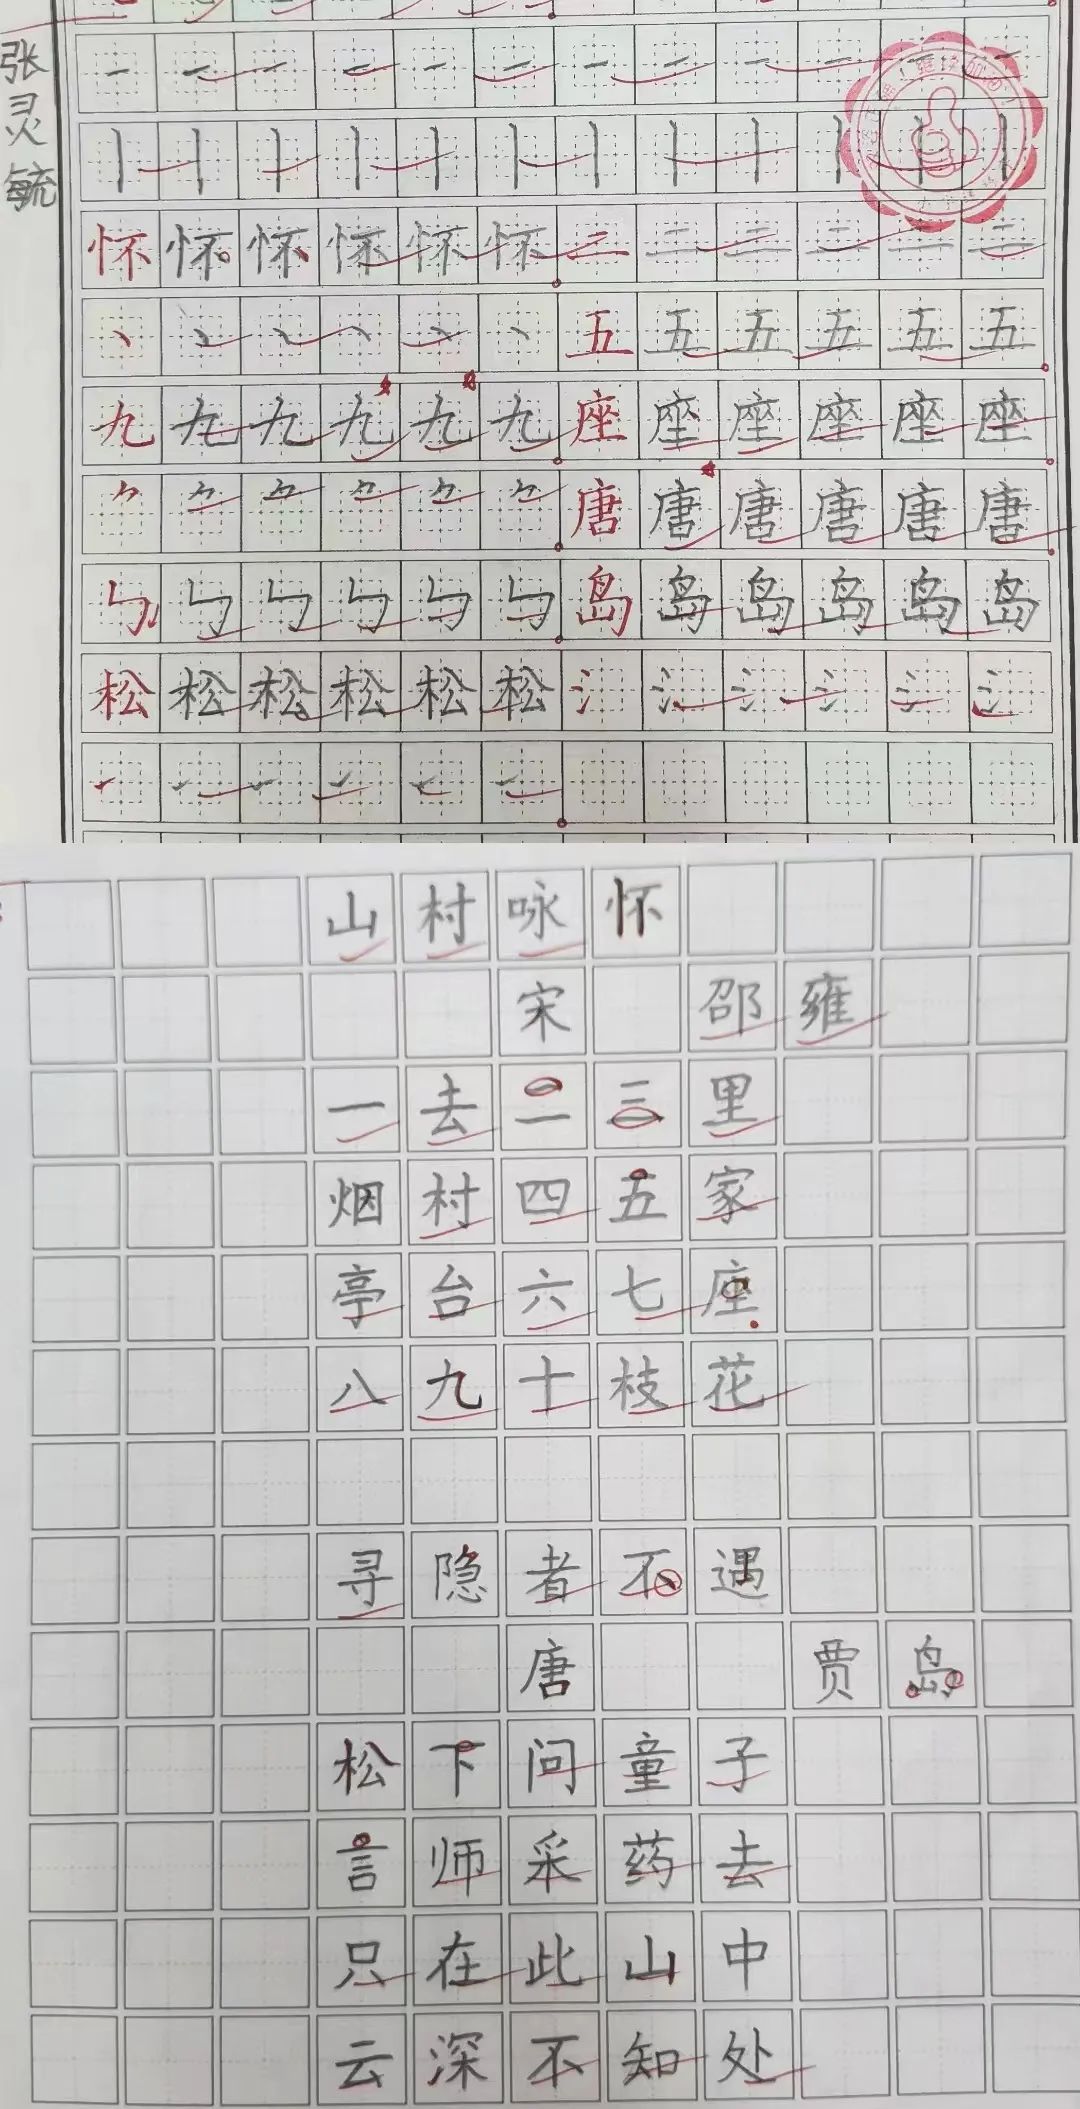 张灵毓
一 一 一 一 一 一 一 一 一 一 一 一
丨 丨 丨 丨 丨 丨 丨 丨 丨 丨 丨 丨
怀 怀 怀 怀 怀 怀 二 二 二 二 二 二
丶 丶 丶 丶 丶 丶 五 五 五 五 五 五
九 九 九 九 九 九 座 座 座 座 座 座
唐 唐 唐 唐 唐 唐
岛 岛 岛 岛 岛 岛
松 松 松 松 松 松 氵 氵 氵 氵 氵 氵
山村咏怀
宋 邵雍
一去二三里
烟村四五家
亭台六七座
八九十枝花
寻隐者不遇
唐 贾岛
松下问童子
言师采药去
只在此山中
云深不知处